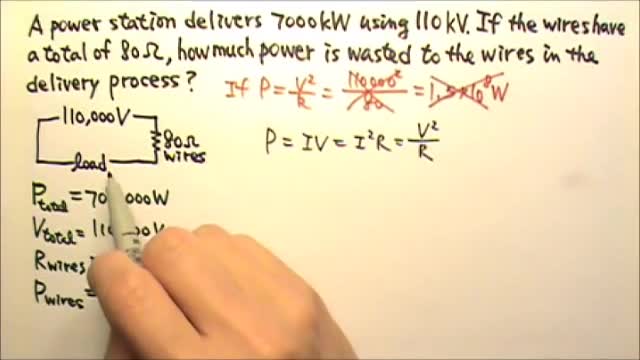 A power station delivers 7000kW using 110kV. If the wires have
a total of 80Ω, how much power is wasted to the wires in the
delivery process?
If P = V²/R = 110000²/80 = 1.5×10⁸W
110,000V
80Ω
wires
load
P = IV = I²R = V²/R
Ptotal = 000W
Vtotal =
Rwires
Pwires =